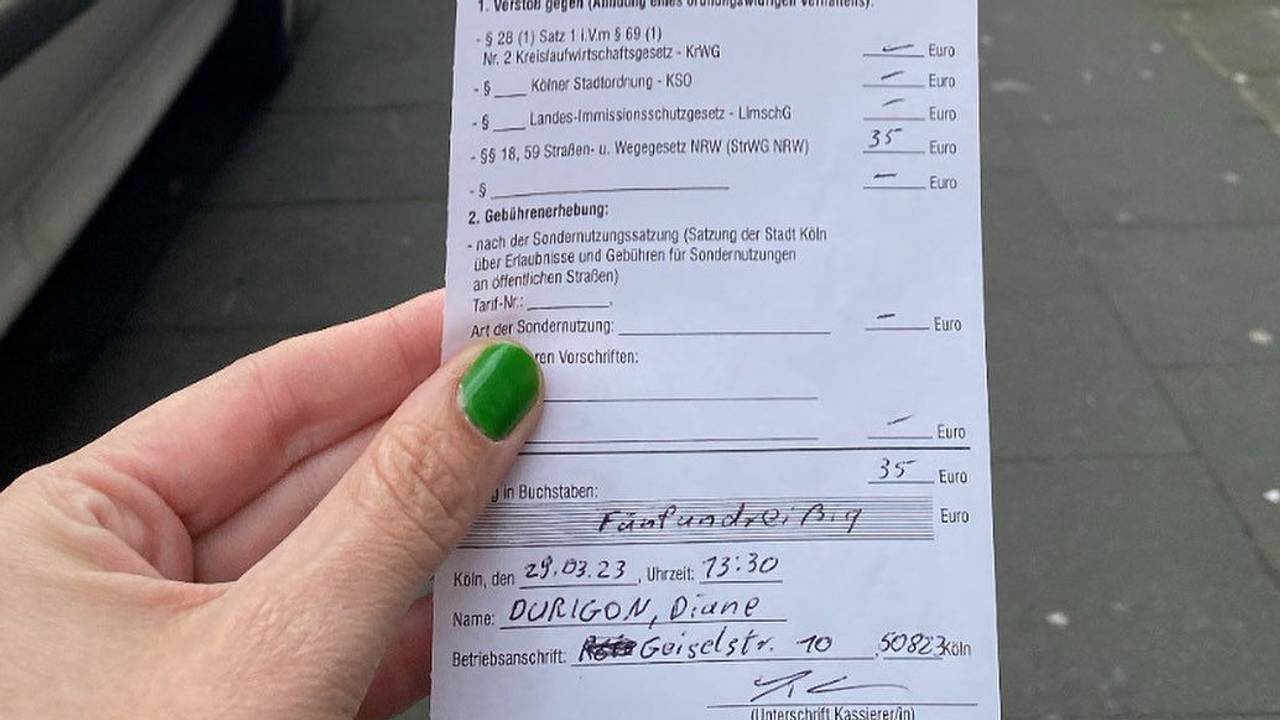 1. Verstoß gegen (Ahndung eines ordnungswidrigen Verhaltens):
- § 28 (1) Satz 1 i.V.m § 69 (1)
Nr. 2 Kreislaufwirtschaftsgesetz - KrWG — Euro
- § ____ Kölner Stadtordnung - KSO — Euro
- § ____ Landes-Immissionsschutzgesetz - LImschG — Euro
- §§ 18, 59 Straßen- u. Wegegesetz NRW (StrWG NRW) 35 Euro
- § ____ — Euro
2. Gebührenerhebung:
- nach der Sondernutzungssatzung (Satzung der Stadt Köln
über Erlaubnisse und Gebühren für Sondernutzungen
an öffentlichen Straßen)
Tarif-Nr.: ____,
Art der Sondernutzung: ____ — Euro
ren Vorschriften:
— Euro
35 Euro
g in Buchstaben:
Fünfundreißig Euro
Köln, den 29.03.23, Uhrzeit: 13:30
Name: DURIGON, Diane
Betriebsanschrift: Geiselstr. 10, 50823 Köln
(Unterschrift Kassierer/in)